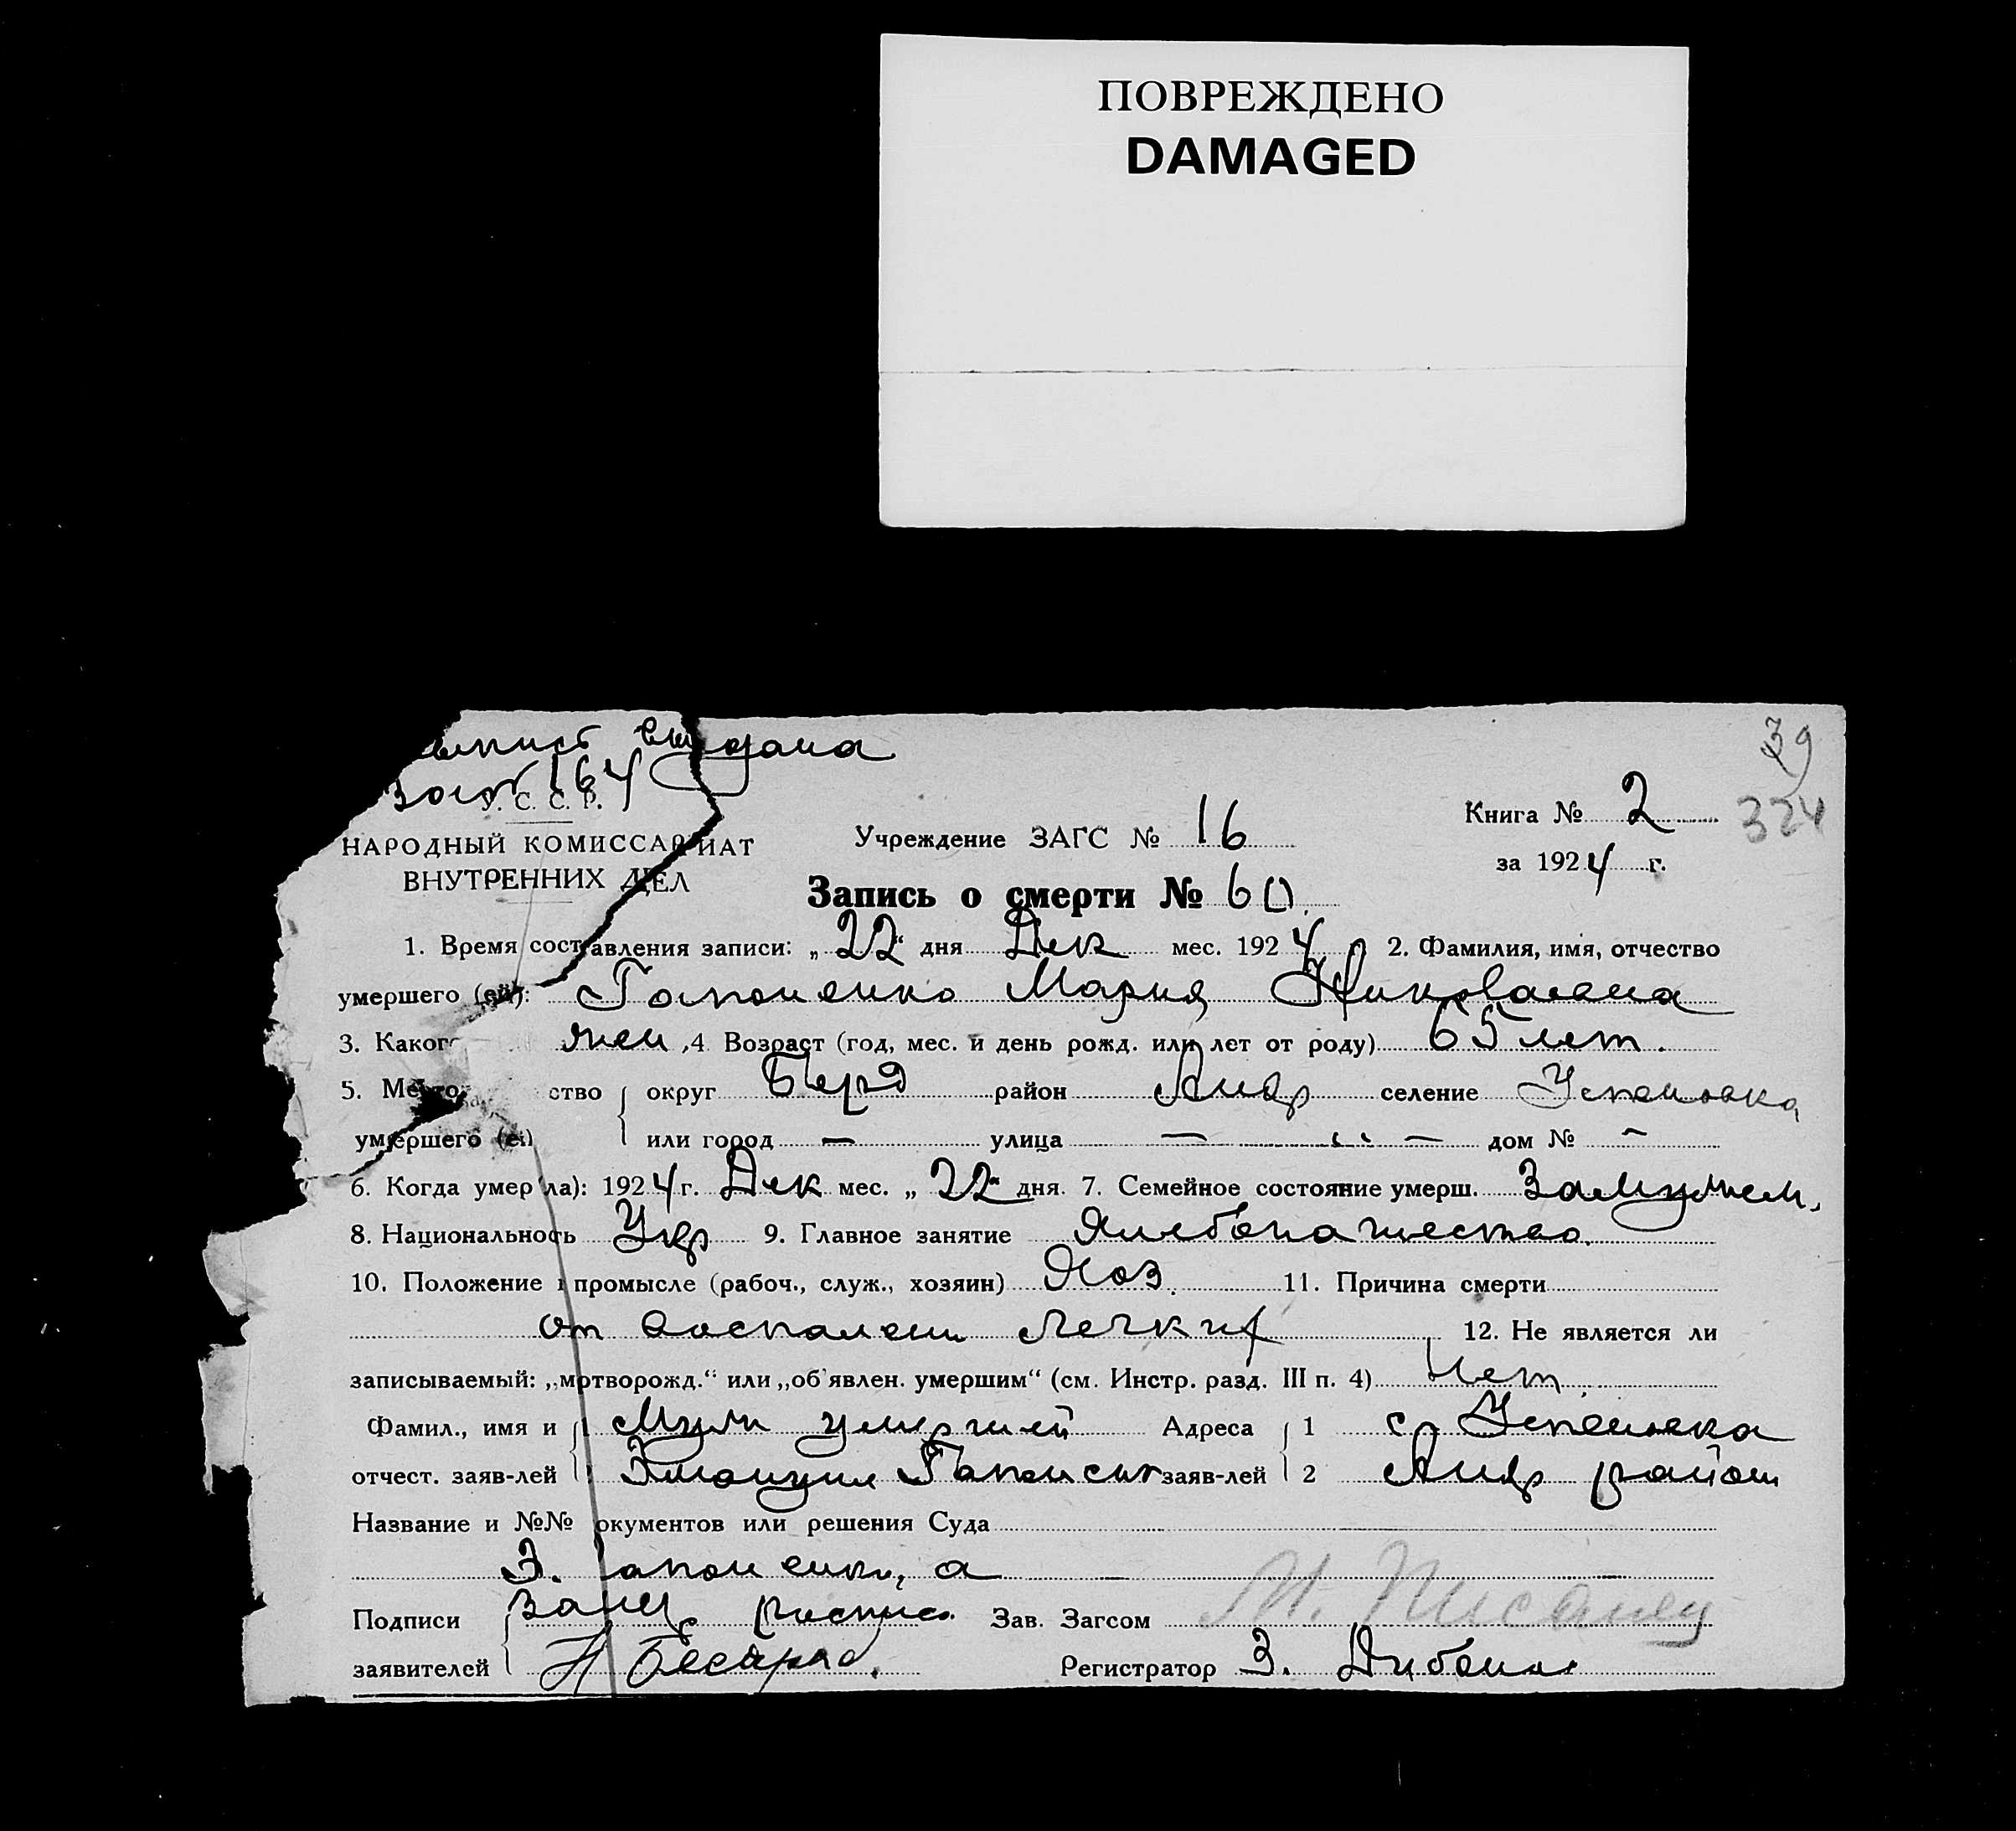 ПОВРЕЖДЕНО
DAMAGED
выдана
164
39
324
У. С. С. Р.
НАРОДНЫЙ КОМИССАРИАТ
ВНУТРЕННИХ ДЕЛ
Учреждение ЗАГС № 16
Книга № 2
за 1924 г.
Запись о смерти № 60.
1. Время составления записи: „22“ дня Дек мес. 1924 2. Фамилия, имя, отчество
умершего (ей): Гапоненко Мария Николаевна
3. Каког жен ,4 Возраст (год, мес. и день рожд. или лет от роду) 65 лет.
5. Место ство округ Берд район Андр селение Успеновка
умершего (ей) или город — улица — „ — дом № —
6. Когда умер ла): 1924 г. Дек мес. „22“ дня. 7. Семейное состояние умерш. Замужем.
8. Национальность Укр 9. Главное занятие Хлебопашество.
10. Положение промысле (рабоч., служ., хозяин) Хоз. 11. Причина смерти
от воспалени легких 12. Не является ли
записываемый: „мртворожд.“ или „об'явлен. умершим“ (см. Инстр. разд. III п. 4) Нет.
Фамил., имя и 1 Муж умершей Адреса 1 с. Успеновка
отчест. заяв-лей Гапоненко заяв-лей 2 Андр район
Название и №№ окументов или решения Суда
З. апоненко, а
Подписи роспис Зав. Загсом М. Писанец
заявителей Н Регистратор З.